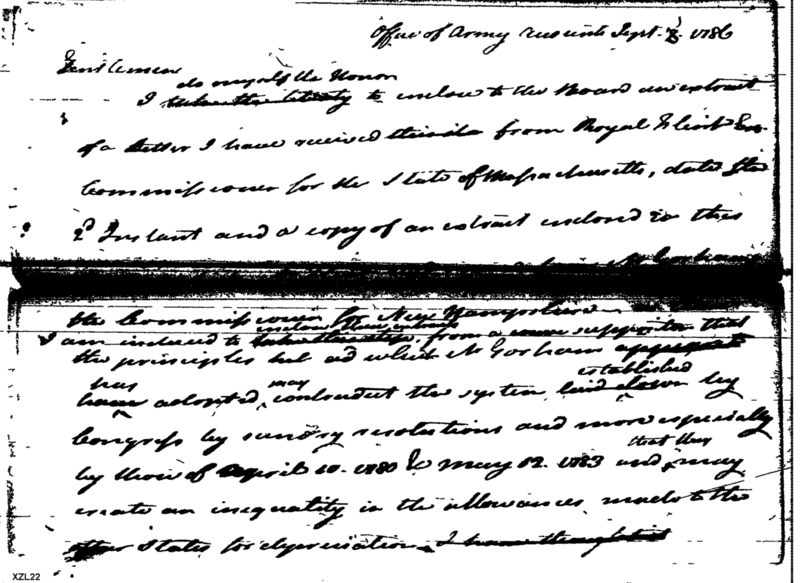 Office of Army Accounts Sept. 1786
Gentlemen
do myself the Honor
I take the liberty to enclose to the Board an extract
of a Letter I have received from Royal Flint Esqr.
Commissioner for the State of Massachusetts, dated the
2d Instant and a copy of an extract enclosed to this
Gorham
the Commissioner for New Hampshire
enclose these extracts
I am induced to from a supposition that
the principles which Mr Gorham
has may established
have adopted, contradict the system laid down by
Congress by sundry resolutions and more especially
that they
by those of April 10. 1780 & May 12. 1783 and may
create an inequality in the allowances made to the
other States for depreciation. I have thought it
XZL22